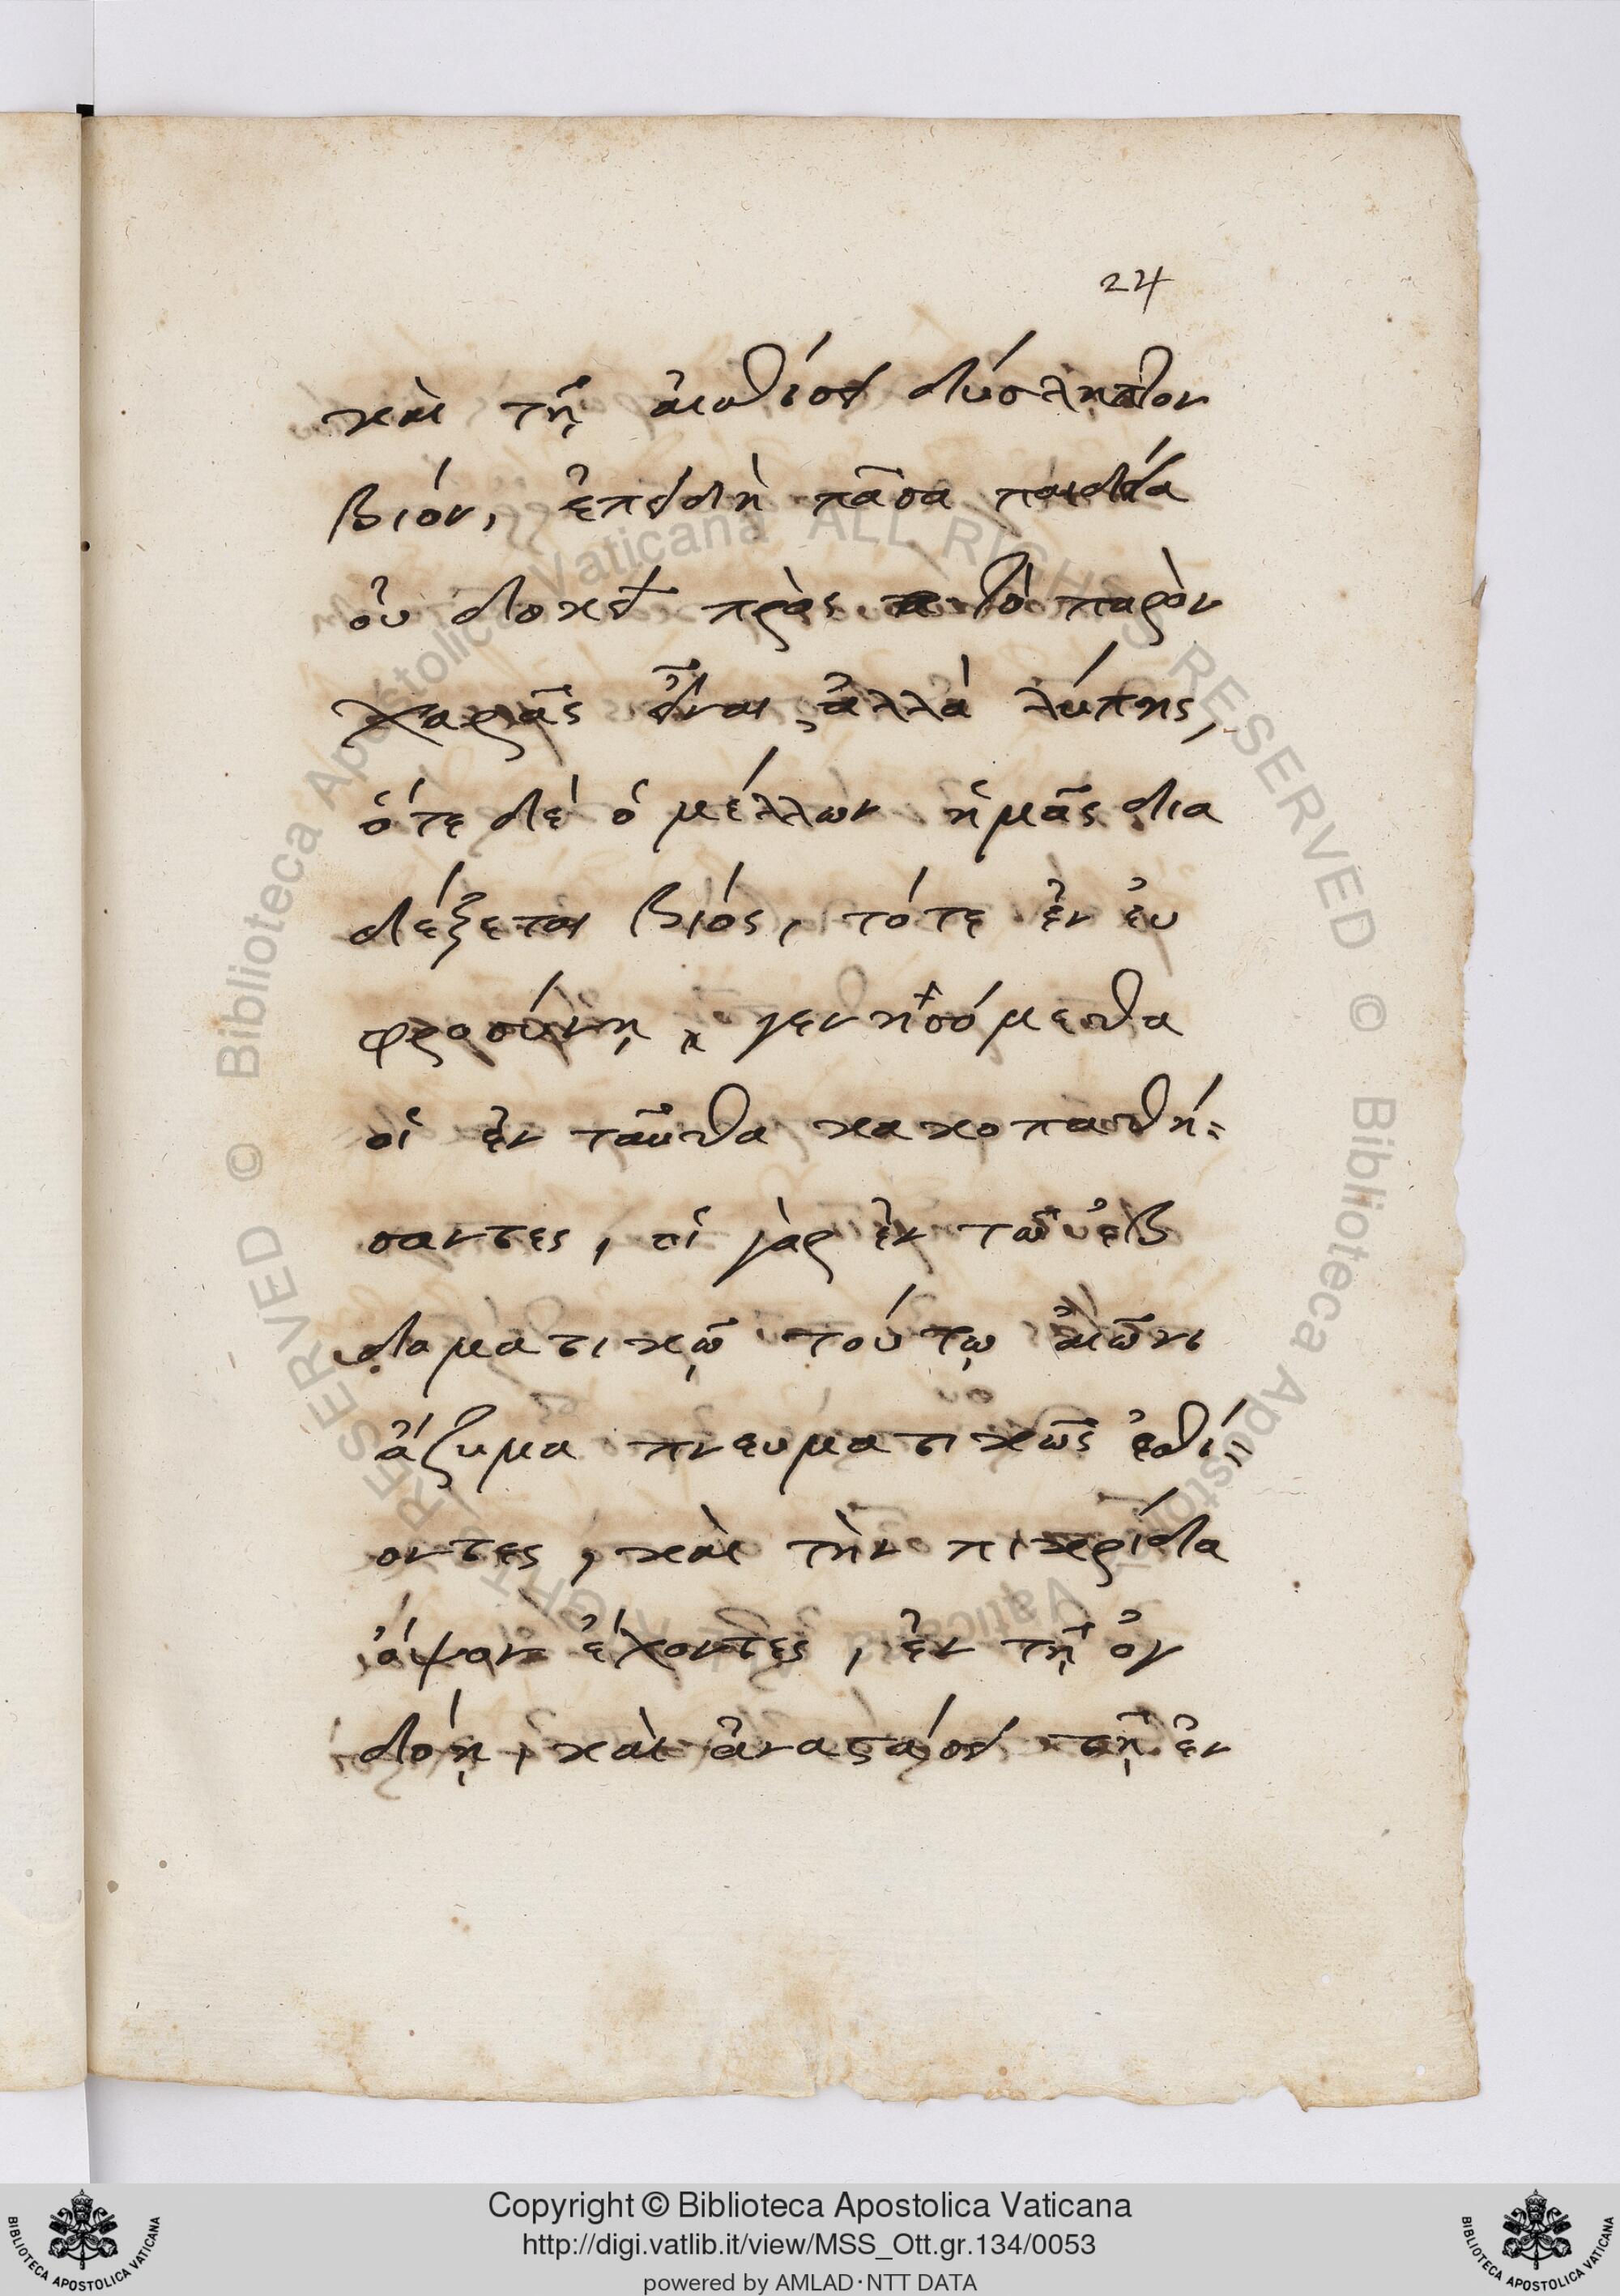 24
καὶ τῆ αἰσθίσει δύσληπτον
βιόν, ἐπειδὴ πᾶσα παιδεία
οὐ δοκεῖ πρὸς τὸ παρὸν
χαρᾶς εἶναι, ἀλλὰ λύπης,
ὅτε δὲ ὁ μέλλων ἡμᾶς δια
δέξεται βιός, τότε ἐν ἐυ
φροσύνῃ, γενησόμεθα
οἱ ἐν ταῦθα κακοπαθή=
σαντες, οἱ γὰρ ἐν τῶ ἑβ
δοματικῷ τούτῳ αἰῶνι
ἄζυμα πνευματικῶς ἐσθί=
οντες, καὶ τὴν πικρίδα
ὄψον ἔχοντες, ἐν τῇ ὀγ
δόῃ, καὶ ἀναστάσει τῇ ἐν
© Biblioteca Apostolica Vaticana ALL RIGHTS RESERVED © Biblioteca Apostolica Vaticana ALL RIGHTS RESERVED
Copyright © Biblioteca Apostolica Vaticana
http://digi.vatlib.it/view/MSS_Ott.gr.134/0053
powered by AMLAD·NTT DATA
BIBLIOTECA APOSTOLICA VATICANA
BIBLIOTECA APOSTOLICA VATICANA